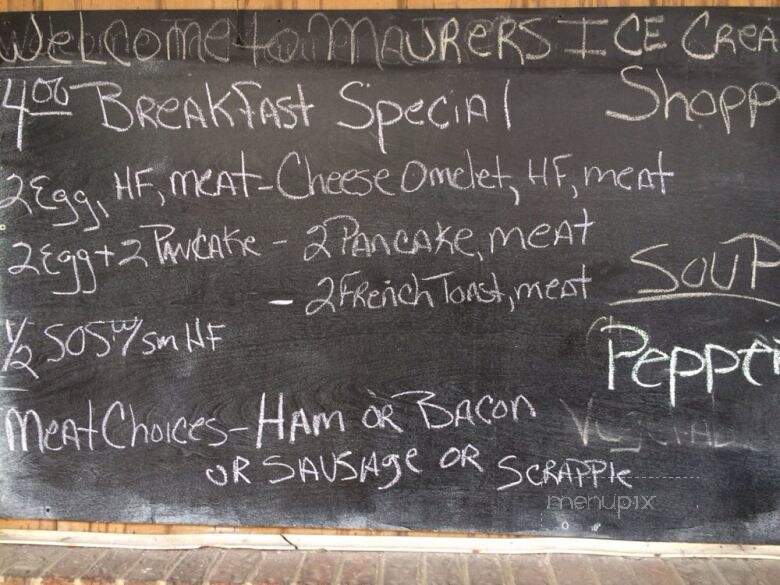 Welcome to Maurers Ice Crea
Shopp
4.00 Breakfast Special
2 Egg, HF, meat - Cheese Omelet, HF, meat
2 Egg + 2 Pancake - 2 Pancake, meat
- 2 French Toast, meat
SOUP
1/2 SOS w/ sm HF
Peppe
Meat Choices - Ham or Bacon
or Sausage or Scrapple
menupix